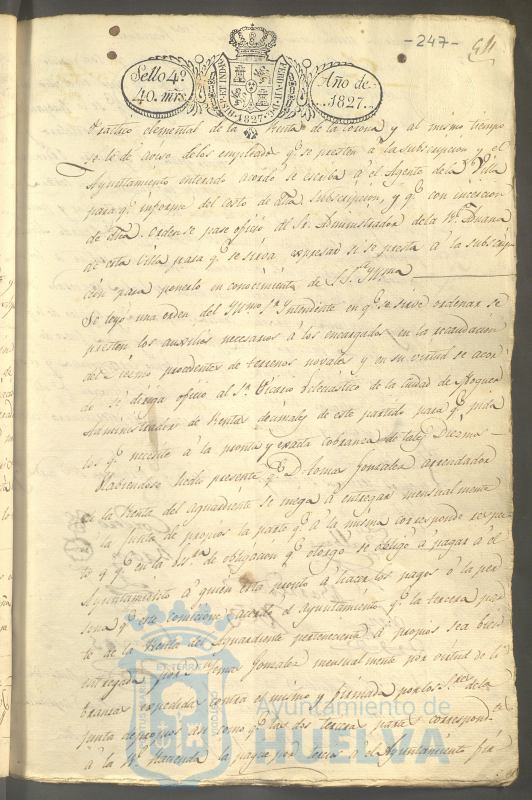 -247-
Sello 4º
40. mrs.
HISP. ET IND. R. 1827.
Año de
1827.
Tratado elemental de la Renta de la Corona y al mismo tiempo
se le dé aviso de los empleados qe. se presten à la subscripcion y el
Ayuntamiento enterado acordó se escriba à el Agente de la Villa
para qe. informe del costo de dha. subscripcion, y qe. con incercion
de dha. orden se pase oficio al Sr. Administrador de la Rl. Aduana
de esta Villa para qe. se sirva expresar si se presta à la subscrip
cion para ponerlo en conocimiento de S. Sª. Yllma
Se leyó una orden del Yllmo. Sr. Yntendente en qe. se sirve ordenar se
presten los auxilios necesarios à los encargados en la recaudacion
del Diezmo procedentes de terrenos novales y en su virtud se acor
dó se dirija oficio al Sr. Vicario Eclesiastico de la ciudad de Moguer
Administrador de Rentas decimales de este partido para qe. pida
los qe. necesite à la pronta y exacta cobranza de tales Diezmos
Habiendose hecho presente qe. Dn. Tomas Gonzalez arrendador
de la Renta del aguardiente se niega à entregar mensualmente
à la Junta de propios la parte qe. à la misma corresponde respec
to à qe. en la esra. de obligacion qe. otorgó se obligó à pagar à el
Ayuntamiento à quien está pronto à hacer los pagos ò la per
sona qe. este comicione: acordó el ayuntamiento qe. la tercera par
te de la Renta del Aguardiente perteneciente à propios sea
entregada por Tomas Gonzalez mensualmente por virtud de li
branza expedida contra el mismo y firmada por los Sres. de la
junta de propios asi como qe. las dos terceras partes correspondtes
à la Rl. Hacienda la pague por tercios à el Ayuntamiento
Ayuntamiento de
HUELVA